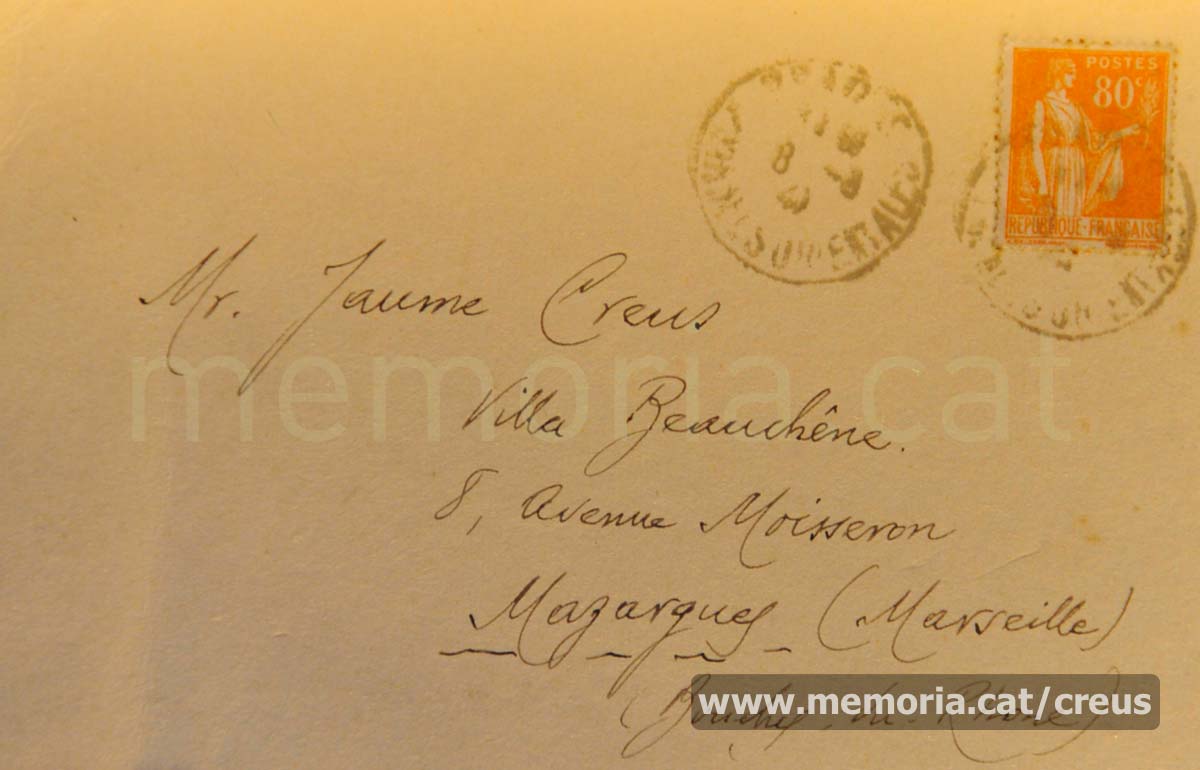 POSTES
80c
REPUBLIQUE-FRANÇAISE
Mr. Jaume Creus
Villa Beauchêne.
8, Avenue Moisseron
Mazargues (Marseille)
(Bouches-du-Rhône)
memoria.cat
www.memoria.cat/creus